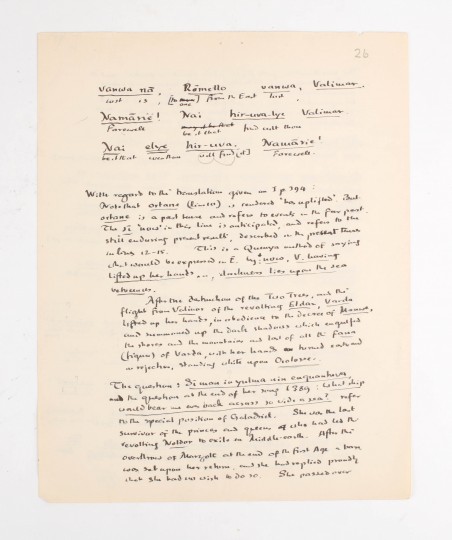 26
Vanwa nā, Rōmello vanwa, Valimar.
lost is, from the East lost,
Namárie! Nai hir-uva-lye Valimar
Farewell be it that find wilt thou
Nai elye hir-uva. Namárie!
be it that even thou will find [it] Farewell.
With regard to the translation given on I p 394:
Note that ortane (line 10) is rendered 'has uplifted'. But
ortane is a past tense and refers to events in the far past.
The sí 'now' in this line is anticipated, and refers to the
still enduring present result, described in the present tenses
in lines 12-15. This is a Quenya method of saying
what would be expressed in E. by: now, V. having
lifted up her hands ..., darkness lies upon the sea
After the destruction of the Two Trees, and the
flight from Valinor of the revolting Eldar, Varda
lifted up her hands, in obedience to the decree of Manwe,
and summoned up the dark shadows which engulfed
the shores and the mountains and last of all the fana
(figure) of Varda, with her hands turned eastward
in rejection, standing white upon Oiolosse.
The question: Sí man i yulma nin enquantuva,
and the question at the end of her song I 389: What ship
would bear me ever back across so wide a sea? refer
to the special position of Galadriel. She was the last
survivor of the princes and queens of who had led the
revolting Noldor to exile in Middle-earth. After the
overthrow of Morgoth at the end of the First Age a ban
was set upon her return, and she had replied proudly
that she had no wish to do so. She passed over